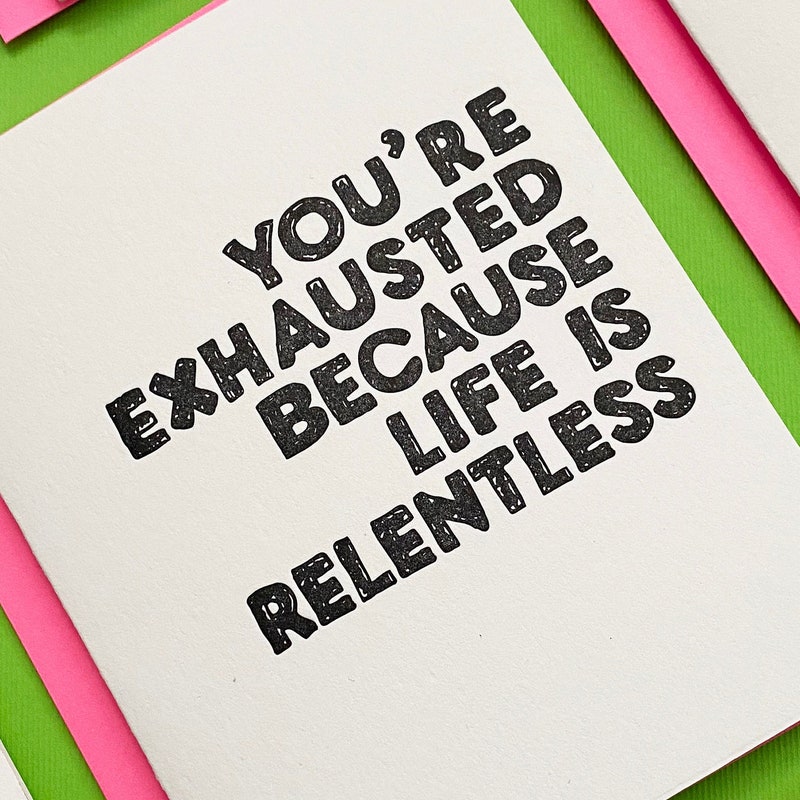 YOU'RE
EXHAUSTED
BECAUSE
LIFE IS
RELENTLESS